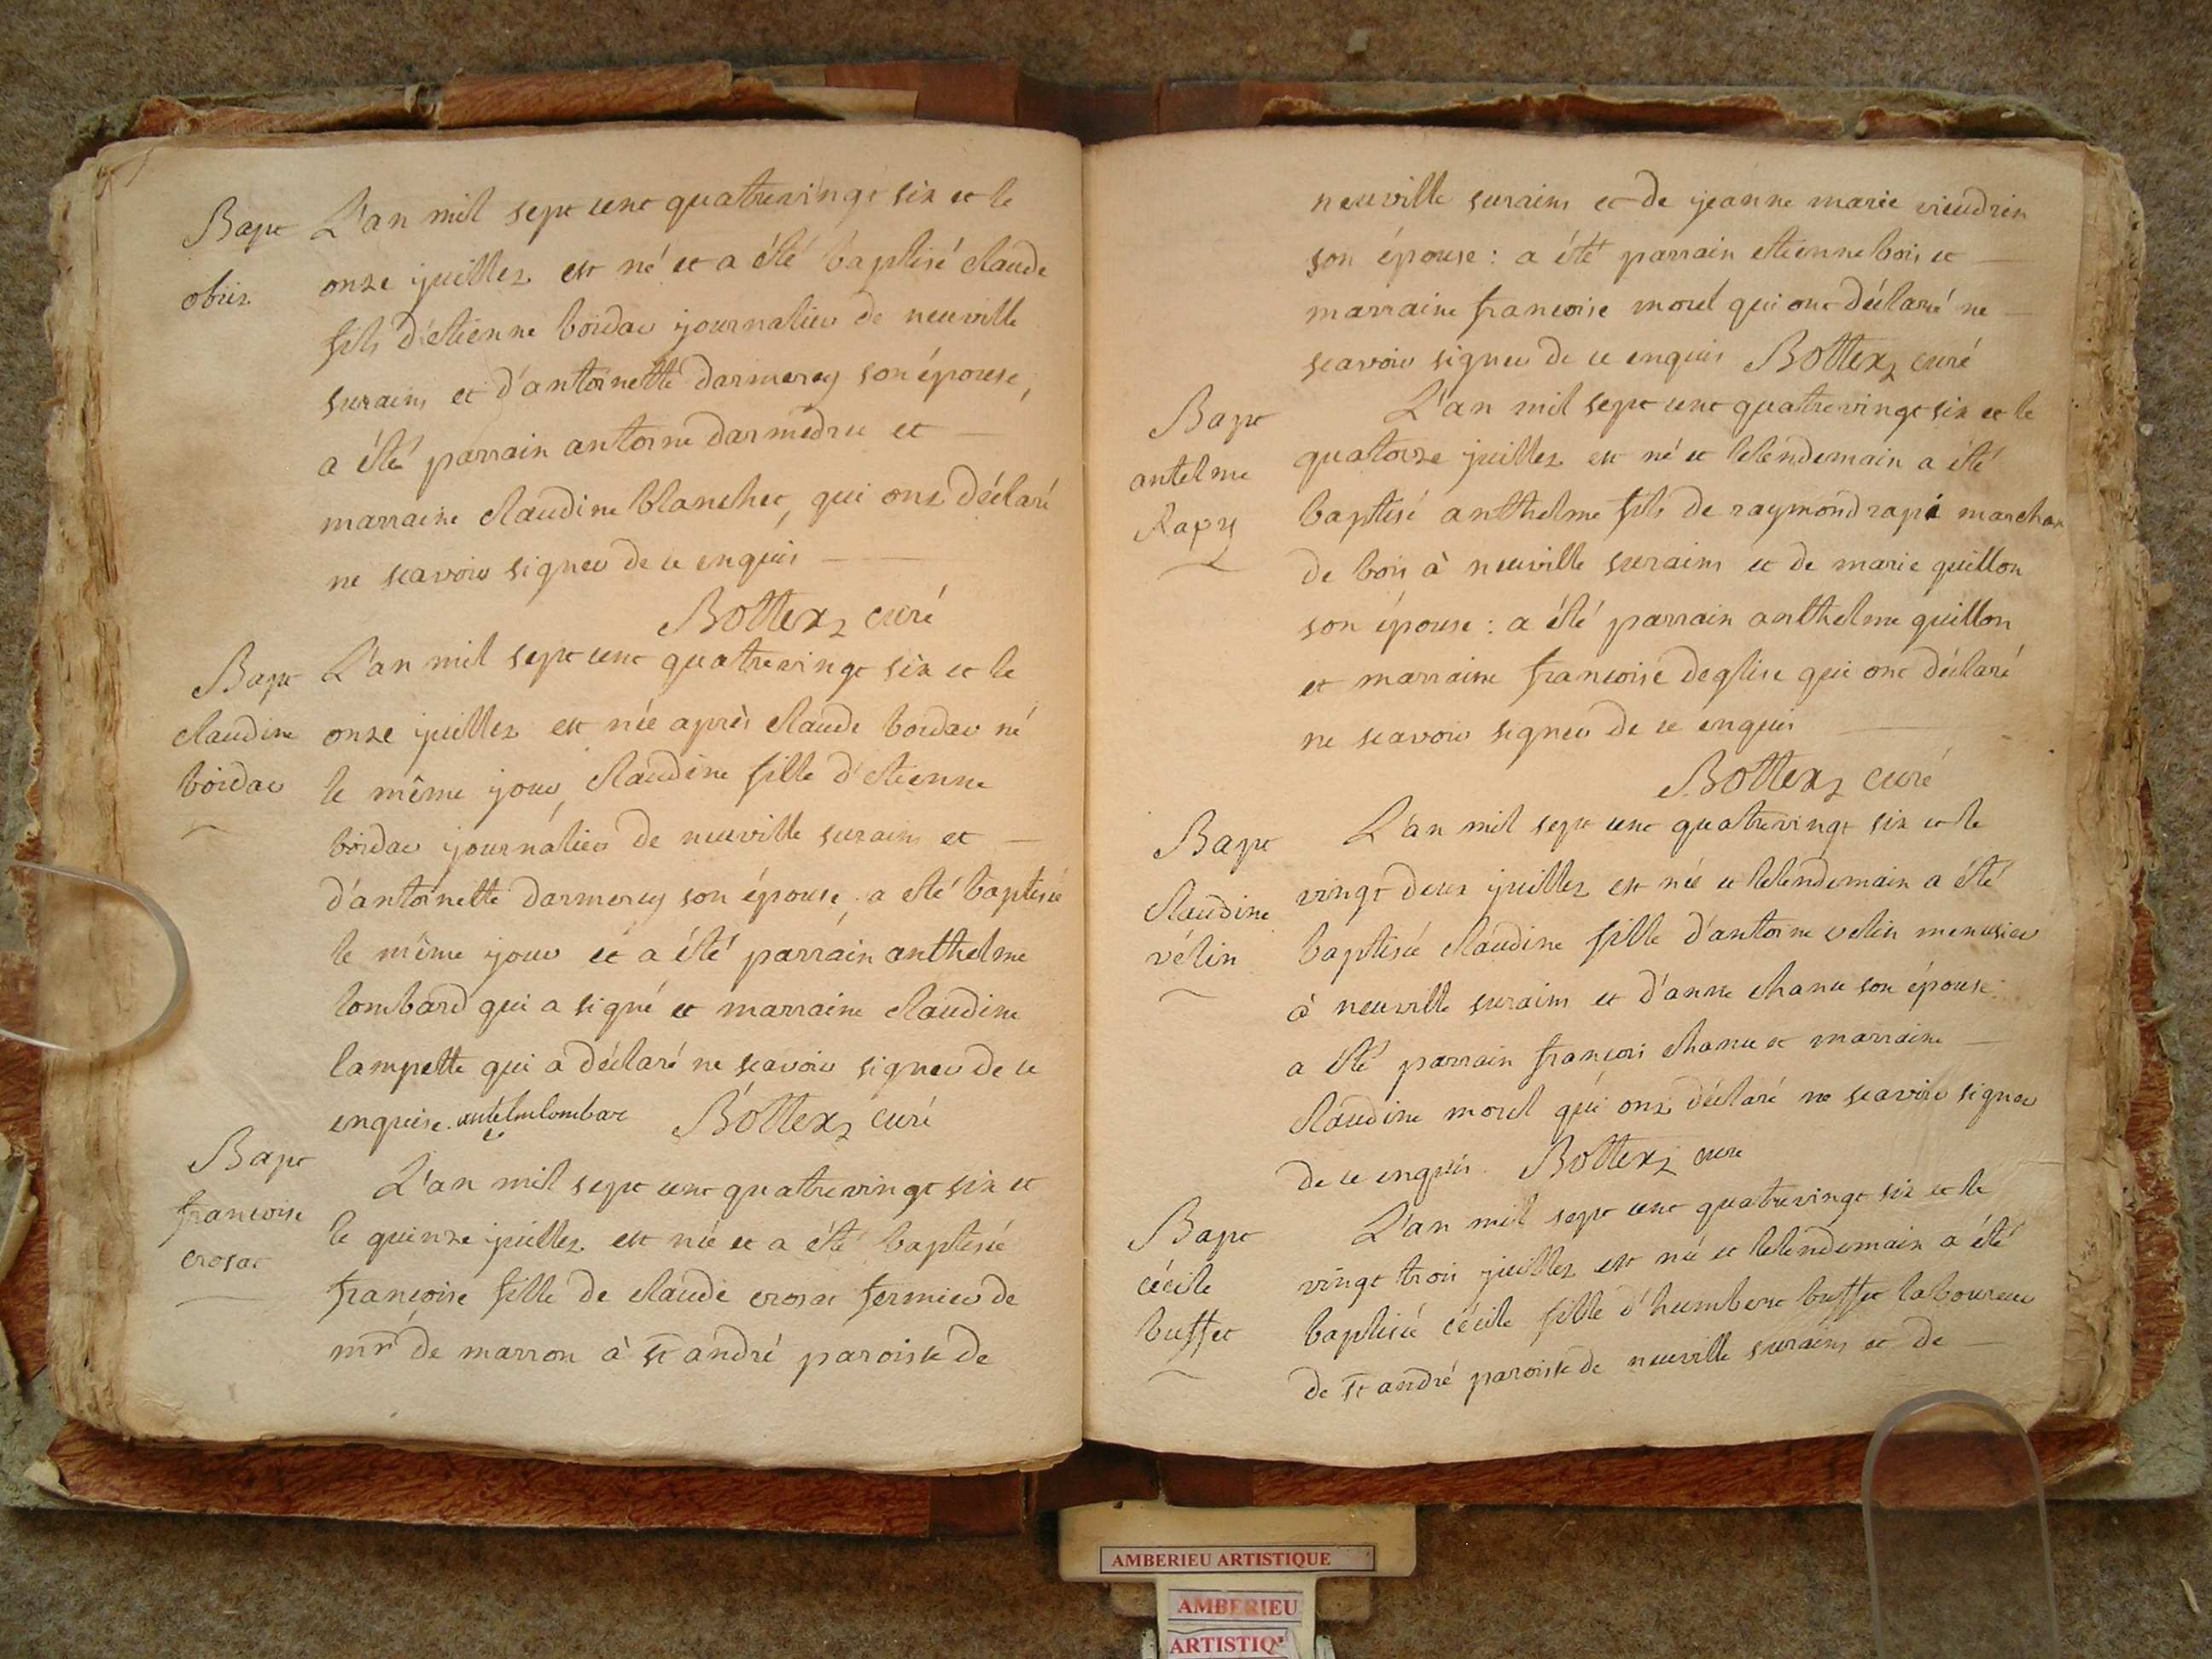 Bapt
obiit
L'an mil sept cent quatrevingt six et le
onze juillet est né et a été baptisé claude
fils d'etienne boidar journalier de neuville
surains et d'antoinette darmerey son épouse,
a été parrain antoine darmedru et
marraine claudine blanchet, qui ont déclaré
ne scavoir signer de ce enquis
Bottex curé
Bapt
claudine
boidar
L'an mil sept cent quatrevingt six et le
onze juillet est née après claude boidar né
le même jour, claudine fille d'etienne
boidar journalier de neuville surains et
d'antoinette darmerey son épouse, a été baptisée
le même jour et a été parrain anthelme
lombard qui a signé et marraine claudine
lampette qui a déclaré ne scavoir signer de ce
enquise. antelmelombar Bottex curé
Bapt
francoise
crosat
L'an mil sept cent quatrevingt six et
le quinze juillet est née et a été baptisée
francoise fille de claude crosat fermier de
mr de marron à st andré paroisse de
neuville surains et de jeanne marie vieudrin
son épouse : a été parrain etienne bois et
marraine francoise morel qui ont déclaré ne
scavoir signer de ce enquis Bottex curé
Bapt
antelme
Rapy
L'an mil sept cent quatrevingt six et le
quatorze juillet est né et lelendemain a été
baptisé anthelme fils de raymond rapi marchan
de bois à neuville surains et de marie quillon
son épouse : a été parrain anthelme quillon
et marraine francoise deglise qui ont déclaré
ne scavoir signer de ce enquis
Bottex curé
Bapt
Claudine
vélin
L'an mil sept cent quatrevingt six et le
vingt deux juillet est née et lelendemain a été
baptisée claudine fille d'antoine velin menusier
à neuville surains et d'anne chanu son épouse.
a été parrain francois chanu et marraine
claudine morel qui ont déclaré ne scavoir signer
de ce enquis. Bottex cure
Bapt
cécile
buffet
L'an mil sept cent quatrevingt six et le
vingt trois juillet est née et lelendemain a été
baptisée cécile fille d'humbert buffet laboureur
de st andré paroisse de neuville surains et de
AMBERIEU ARTISTIQUE
AMBERIEU
ARTISTIQ